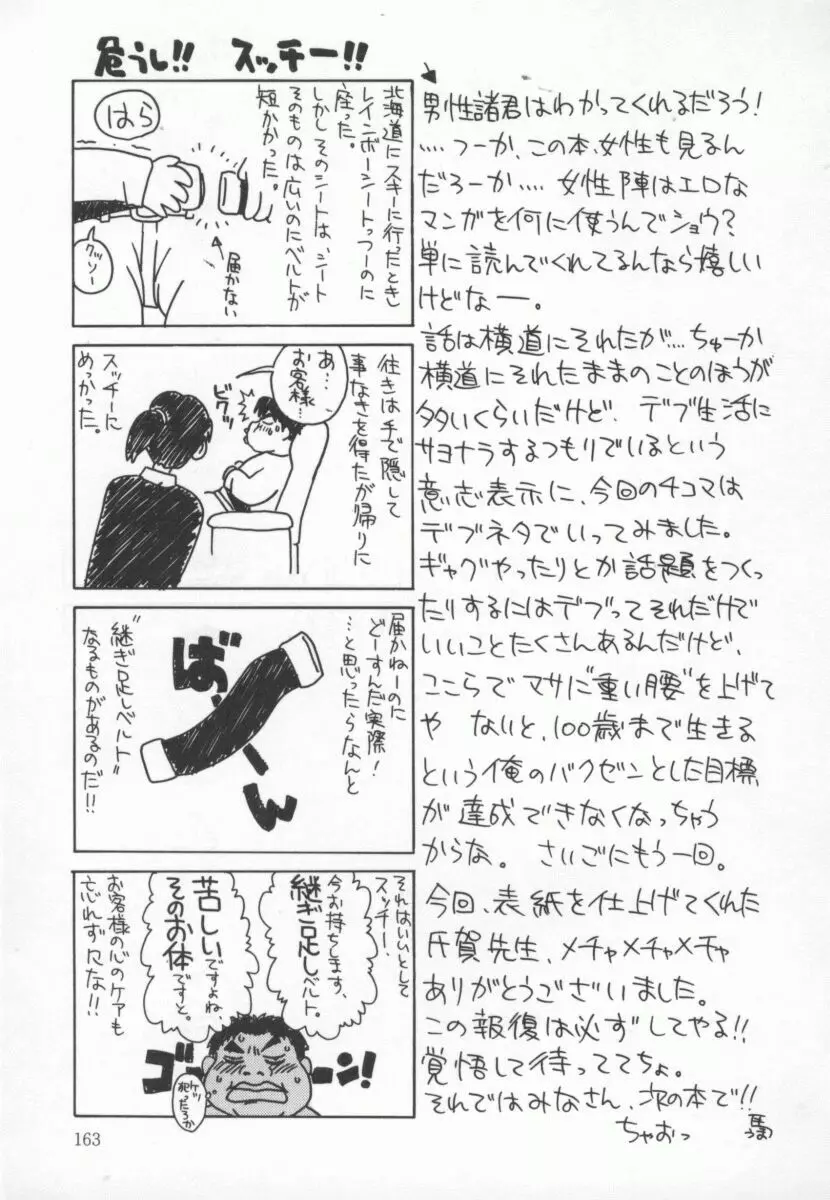 危うし!! スッチー!!
北海道にスキーに行ったとき
レインボーシートっつーのに
座った。
しかしそのシートは、シート
そのものは広いのにベルトが
短かかった。
はら
届かない
クソー
あ…
お客様…
ビクッ
往きは手で隠して
事なきを得たが帰りに
スッチーに
めっかった。
届かねーのに
どーすんだ実際!
…と思ったらなんと
"継ぎ足しベルト"
なるものがあるのだ!!
ばぁーーん
それはいいとして
スッチー、
今お持ちします、
継ぎ足しベルト。
苦しいですよね、
そのお体ですと。
お客様の心のケアも
忘れずにな!!
ゴーーン!
163
男性諸君はわかってくれるだろう!
‥‥つーか、この本、女性も見るん
だろーか‥‥女性陣はエロな
マンガを何に使うんでショウ?
単に読んでくれてるんなら嬉しい
けどなー。
話は横道にそれたが…ちゅーか
横道にそれたままのことのほうが
多いくらいだけど、デブ生活に
サヨナラするつもりでいるという
意志表示に、今回の4コマは
デブネタでいってみました。
ギャグやったりとか話題をつくっ
たりするにはデブってそれだけで
いいことたくさんあるんだけど、
ここらでマサに"重い腰"を上げて
や ないと、100歳まで生きる
という俺のバクゼンとした目標
が達成できなくなっちゃう
からな。さいごにもう一回。
今回、表紙を仕上げてくれた
氏賀先生、メチャメチャメチャ
ありがとうございました。
この報復は必ずしてやる!!
覚悟して待っててちょ。
それではみなさん、次の本で!!
ちゃおっ